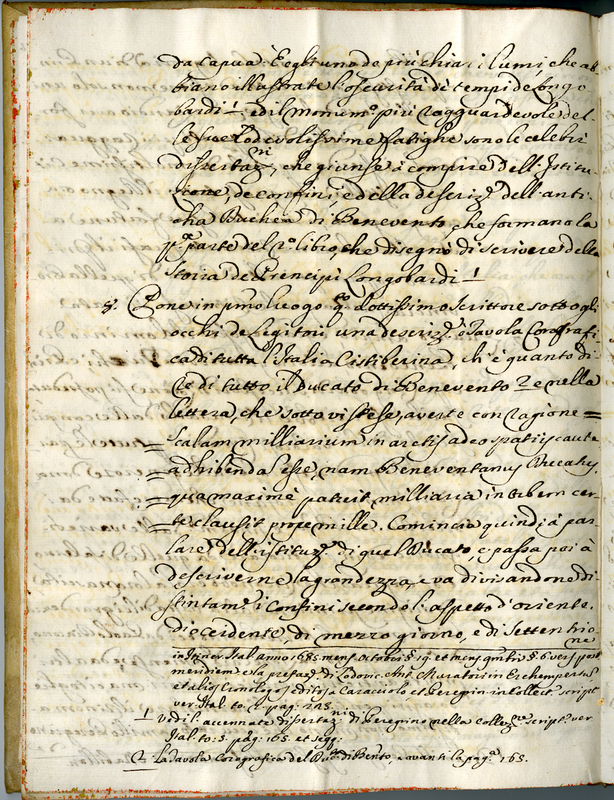 da Capua: E egli uno de più chiari lumi, che ab
biano illustrate l'oscurità di tempi de Longo
bardi 1: ed il monum.º più ragguardevole del
le sue lodevolissime fatighe sono le celebri
dissertaz.ni, che giunse à compire dell'Istitu
zione, de confini, e della descriz.e dell'anti
cha Duchea di Benevento, che formano la
p.ª parte del 2.º libro, che disegnò di scrivere della
storia de Prencipi Longobardi 1
8. Pone in p.mo luogo q.º dottissimo scrittore sotto gli
occhi de Leggitori una descriz.e, ò Tavola Corografi
ca di tutta l'Italia Cistiberina, ch'è quanto di
re di tutto il Ducato di Benevento 2 e nella
lettera, che sotto vi stese, averte con ragione =
= Scalam milliarium in arctis adeo spatijs caute
= adhibenda esse, nam Beneventanus Ducatus,
= qua maximè patuit, milliaria in orbem cer
= te clausit prope mille. Comincia quindi à par
lare dell'istituz.e di quel Ducato, e passa poi à
descriverne la grandezza, e va divisandone di
stintam.e i Confini secondo l'aspetto d'oriente,
di occidente, di mezzo giorno, e di settentrio
ne
in Itiner Ital anno 1685. mens. Octobris § 19. et mens. Qmbris § 6. vesp post
meridiem e la prefaz. di Lodovic. Ant. Muratori in Erchempertu
et alios Cronologos editos à Caracciolo et Peregrin in Collect. script
rer. Ital. to: 2. pag: 223.
1 vedi l'accennate disertaz.ni di Peregrino nella collez.ne Script. rer
Ital. to: 5. pag: 165. et seqq:
2 La Tavola Corografica del Duc.to di Bento, è avanti la pag.ª 165.